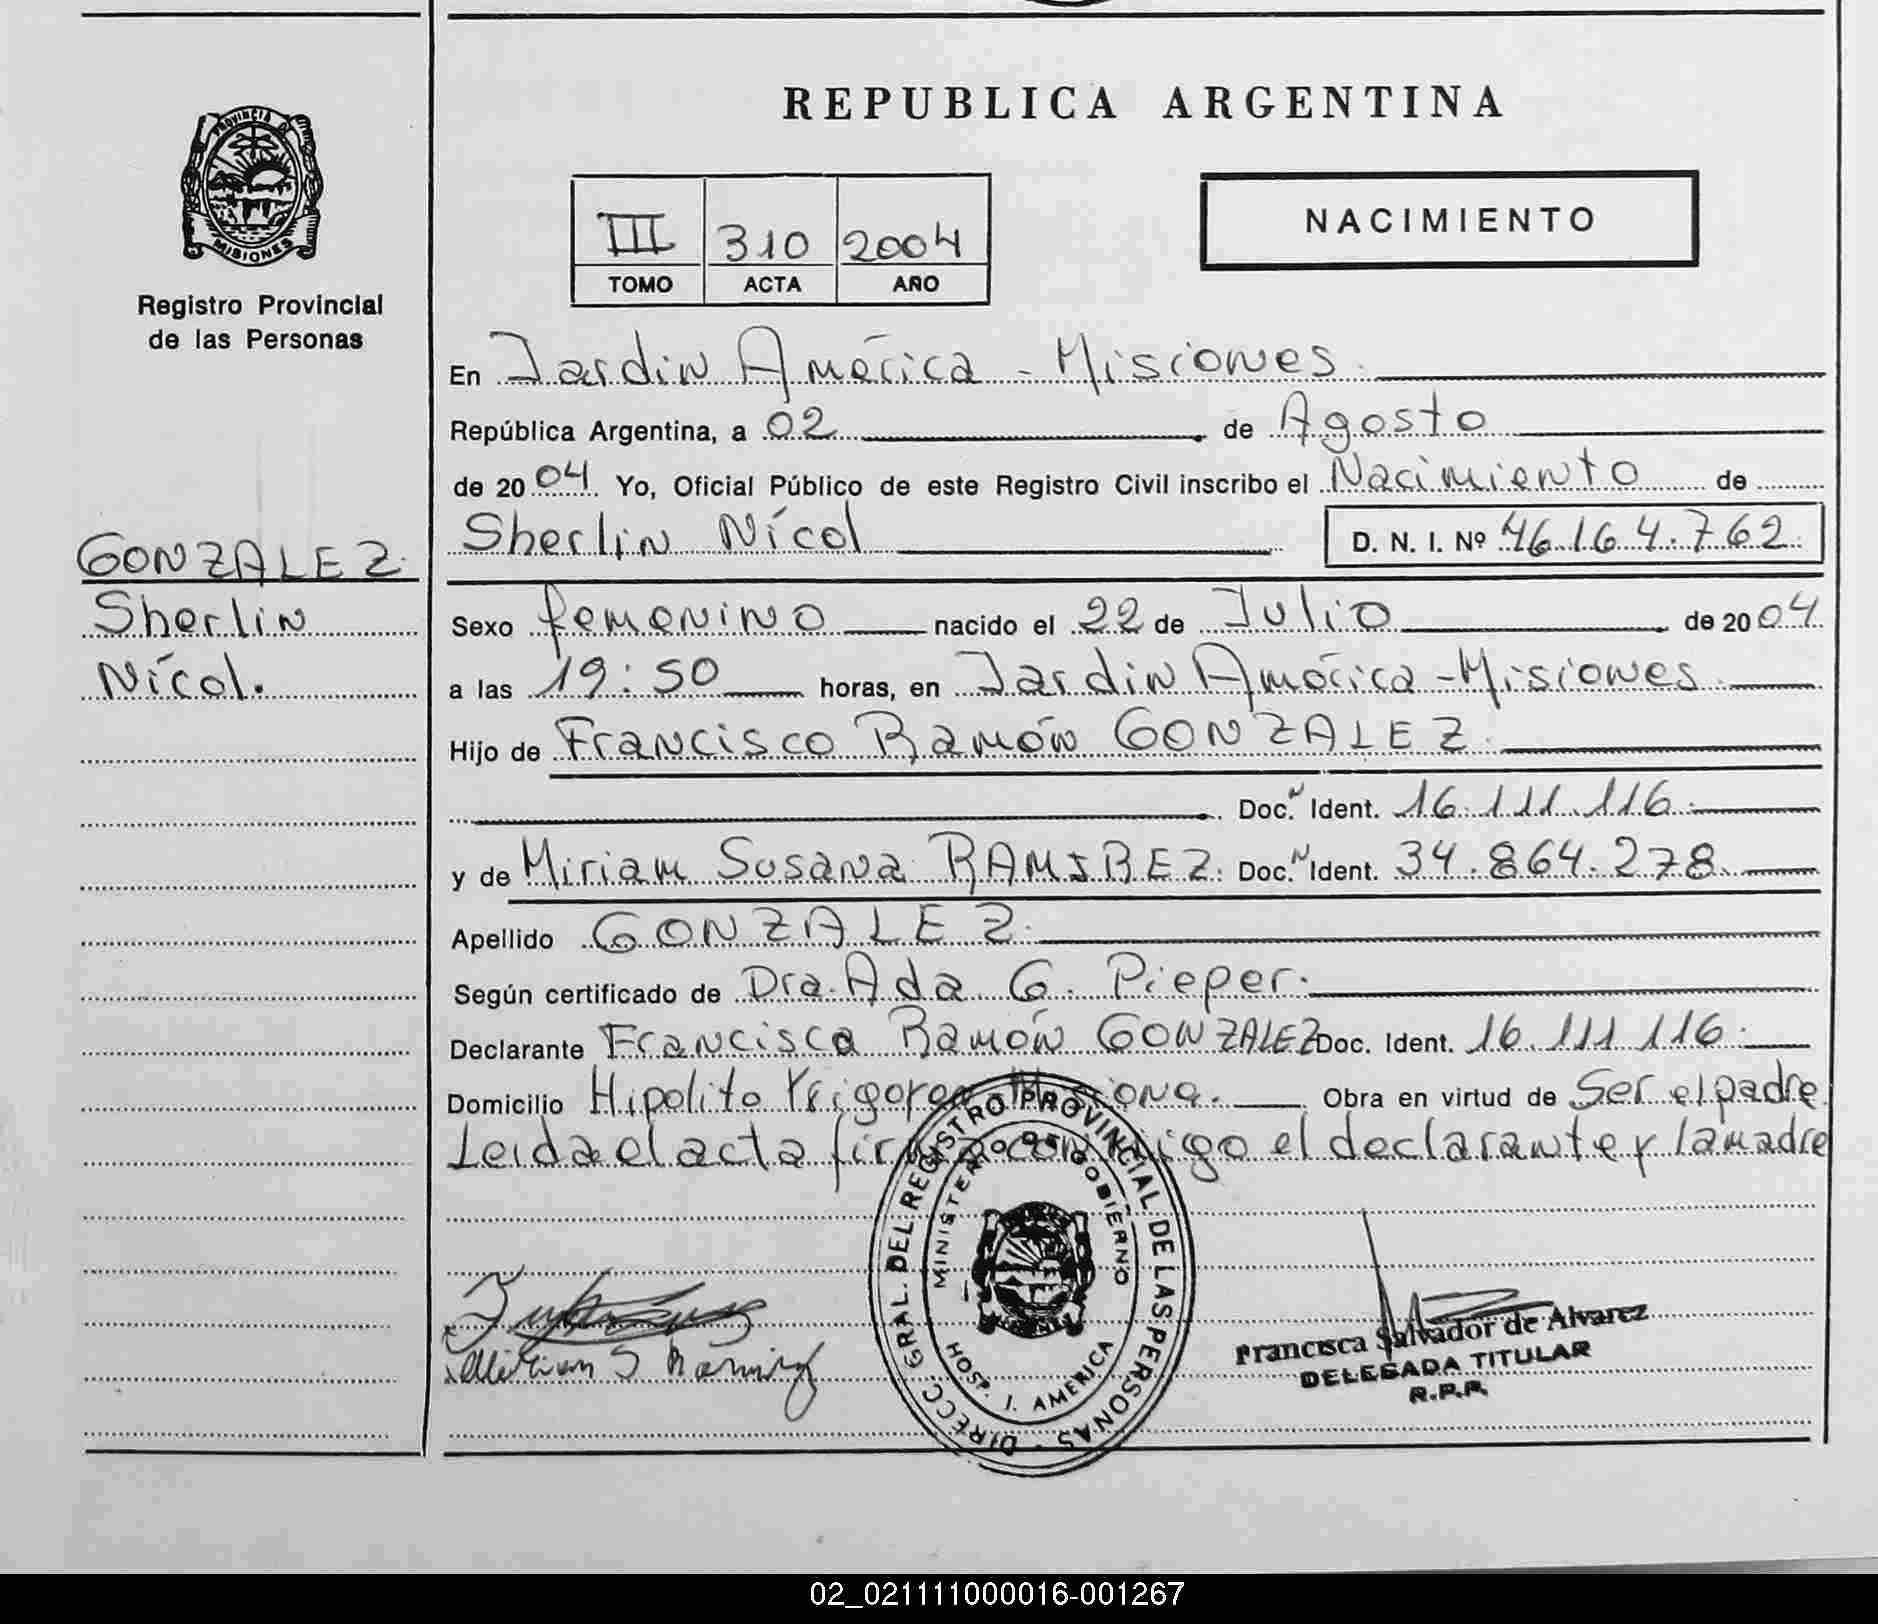 REPUBLICA ARGENTINA
PROVINCIA DE
MISIONES
Registro Provincial
de las Personas
III 310 2004
TOMO ACTA AÑO
NACIMIENTO
En Jardin América - Misiones.
República Argentina, a 02 de Agosto
de 2004 Yo, Oficial Público de este Registro Civil inscribo el Nacimiento de
Sherlin Nícol D. N. I. Nº 46.164.762.
GONZALEZ.
Sherlin
Nícol.
Sexo femenino nacido el 22 de Julio de 2004
a las 19:50 horas, en Jardin América - Misiones.
Hijo de Francisco Ramón GONZALEZ.
Doc. Ident. 16.111.116.
y de Miriam Susana RAMIREZ. Doc. Ident. 34.864.278.
Apellido GONZALEZ.
Según certificado de Dra. Ada G. Pieper.
Declarante Francisco Ramón GONZALEZ Doc. Ident. 16.111.116.
Domicilio Hipolito Yrigoyen Obra en virtud de Ser el padre.
Leida el acta firma conmigo el declarante y la madre
DIRECC. GRAL. DEL REGISTRO PROVINCIAL DE LAS PERSONAS
MINISTERIO DE GOBIERNO
HOSP. J. AMERICA
Miriam S Ramirez
Francisca Salvador de Alvarez
DELEGADA TITULAR
R.P.P.
02_021111000016-001267